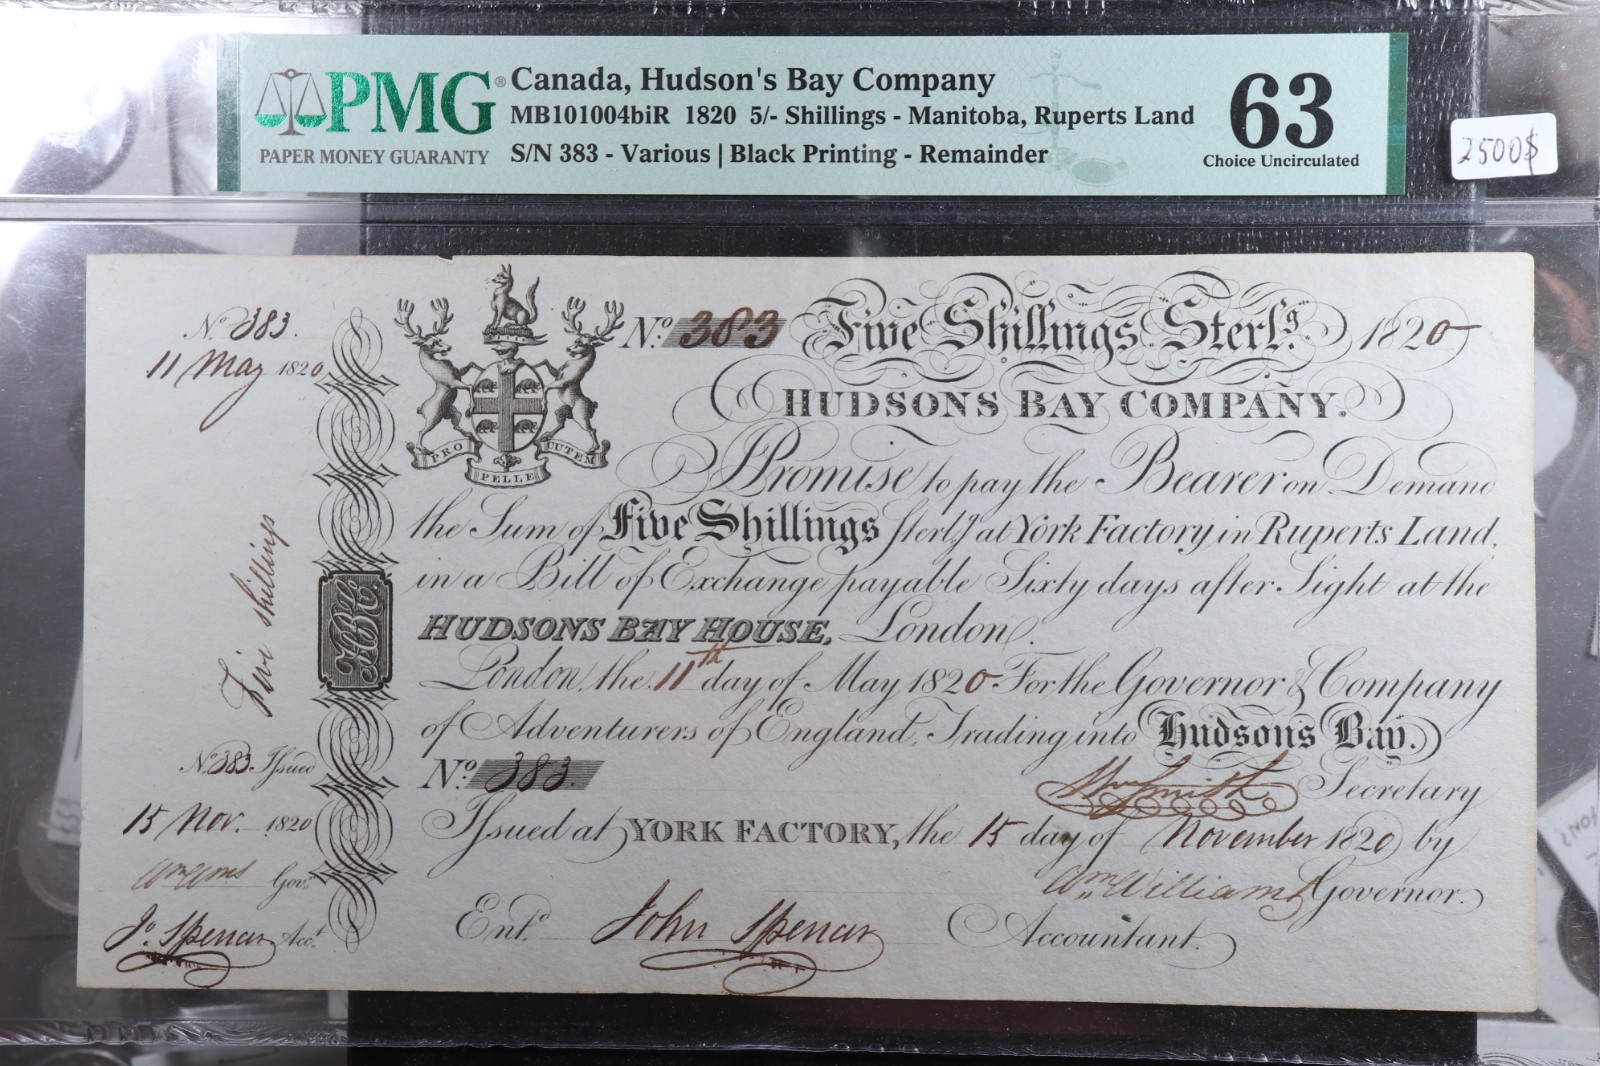 PMG®
PAPER MONEY GUARANTY
Canada, Hudson's Bay Company
MB101004biR 1820 5/- Shillings - Manitoba, Ruperts Land
S/N 383 - Various | Black Printing - Remainder
63
Choice Uncirculated
2500$
No. 383.
11 May 1820
Five shillings
No. 383 Issued
15 Nov. 1820
Wm Wms Govr.
Jo. Spencer Acct.
HBC
PRO PELLE CUTEM
No. 383 Five Shillings Sterlg. 1820
HUDSONS BAY COMPANY.
I Promise to pay the Bearer on Demand
the Sum of Five Shillings Sterlg. at York Factory in Ruperts Land,
in a Bill of Exchange payable Sixty days after Sight at the
HUDSONS BAY HOUSE, London.
London, the 11th day of May 1820 For the Governor & Company
of Adventurers of England, Trading into Hudson's Bay.
No. 383.
Wm Smith Secretary
Issued at YORK FACTORY, the 15 day of November 1820 by
Wm. Williams Governor.
Entd. John Spencer Accountant.